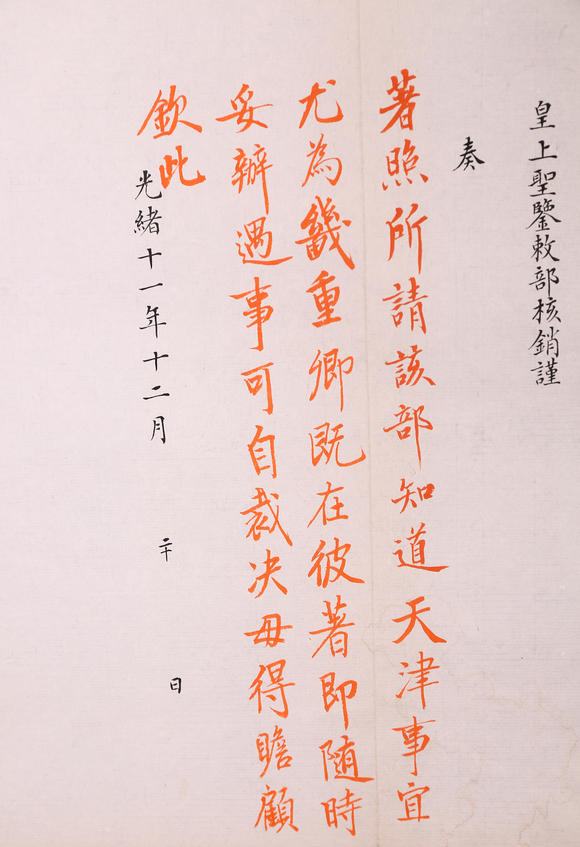 皇上聖鑒敕部核銷謹
奏
著照所請該部知道天津事宜
尤為畿重卿既在彼著即隨時
妥辦遇事可自裁決毋得瞻顧
欽此
光緒十一年十二月二十日